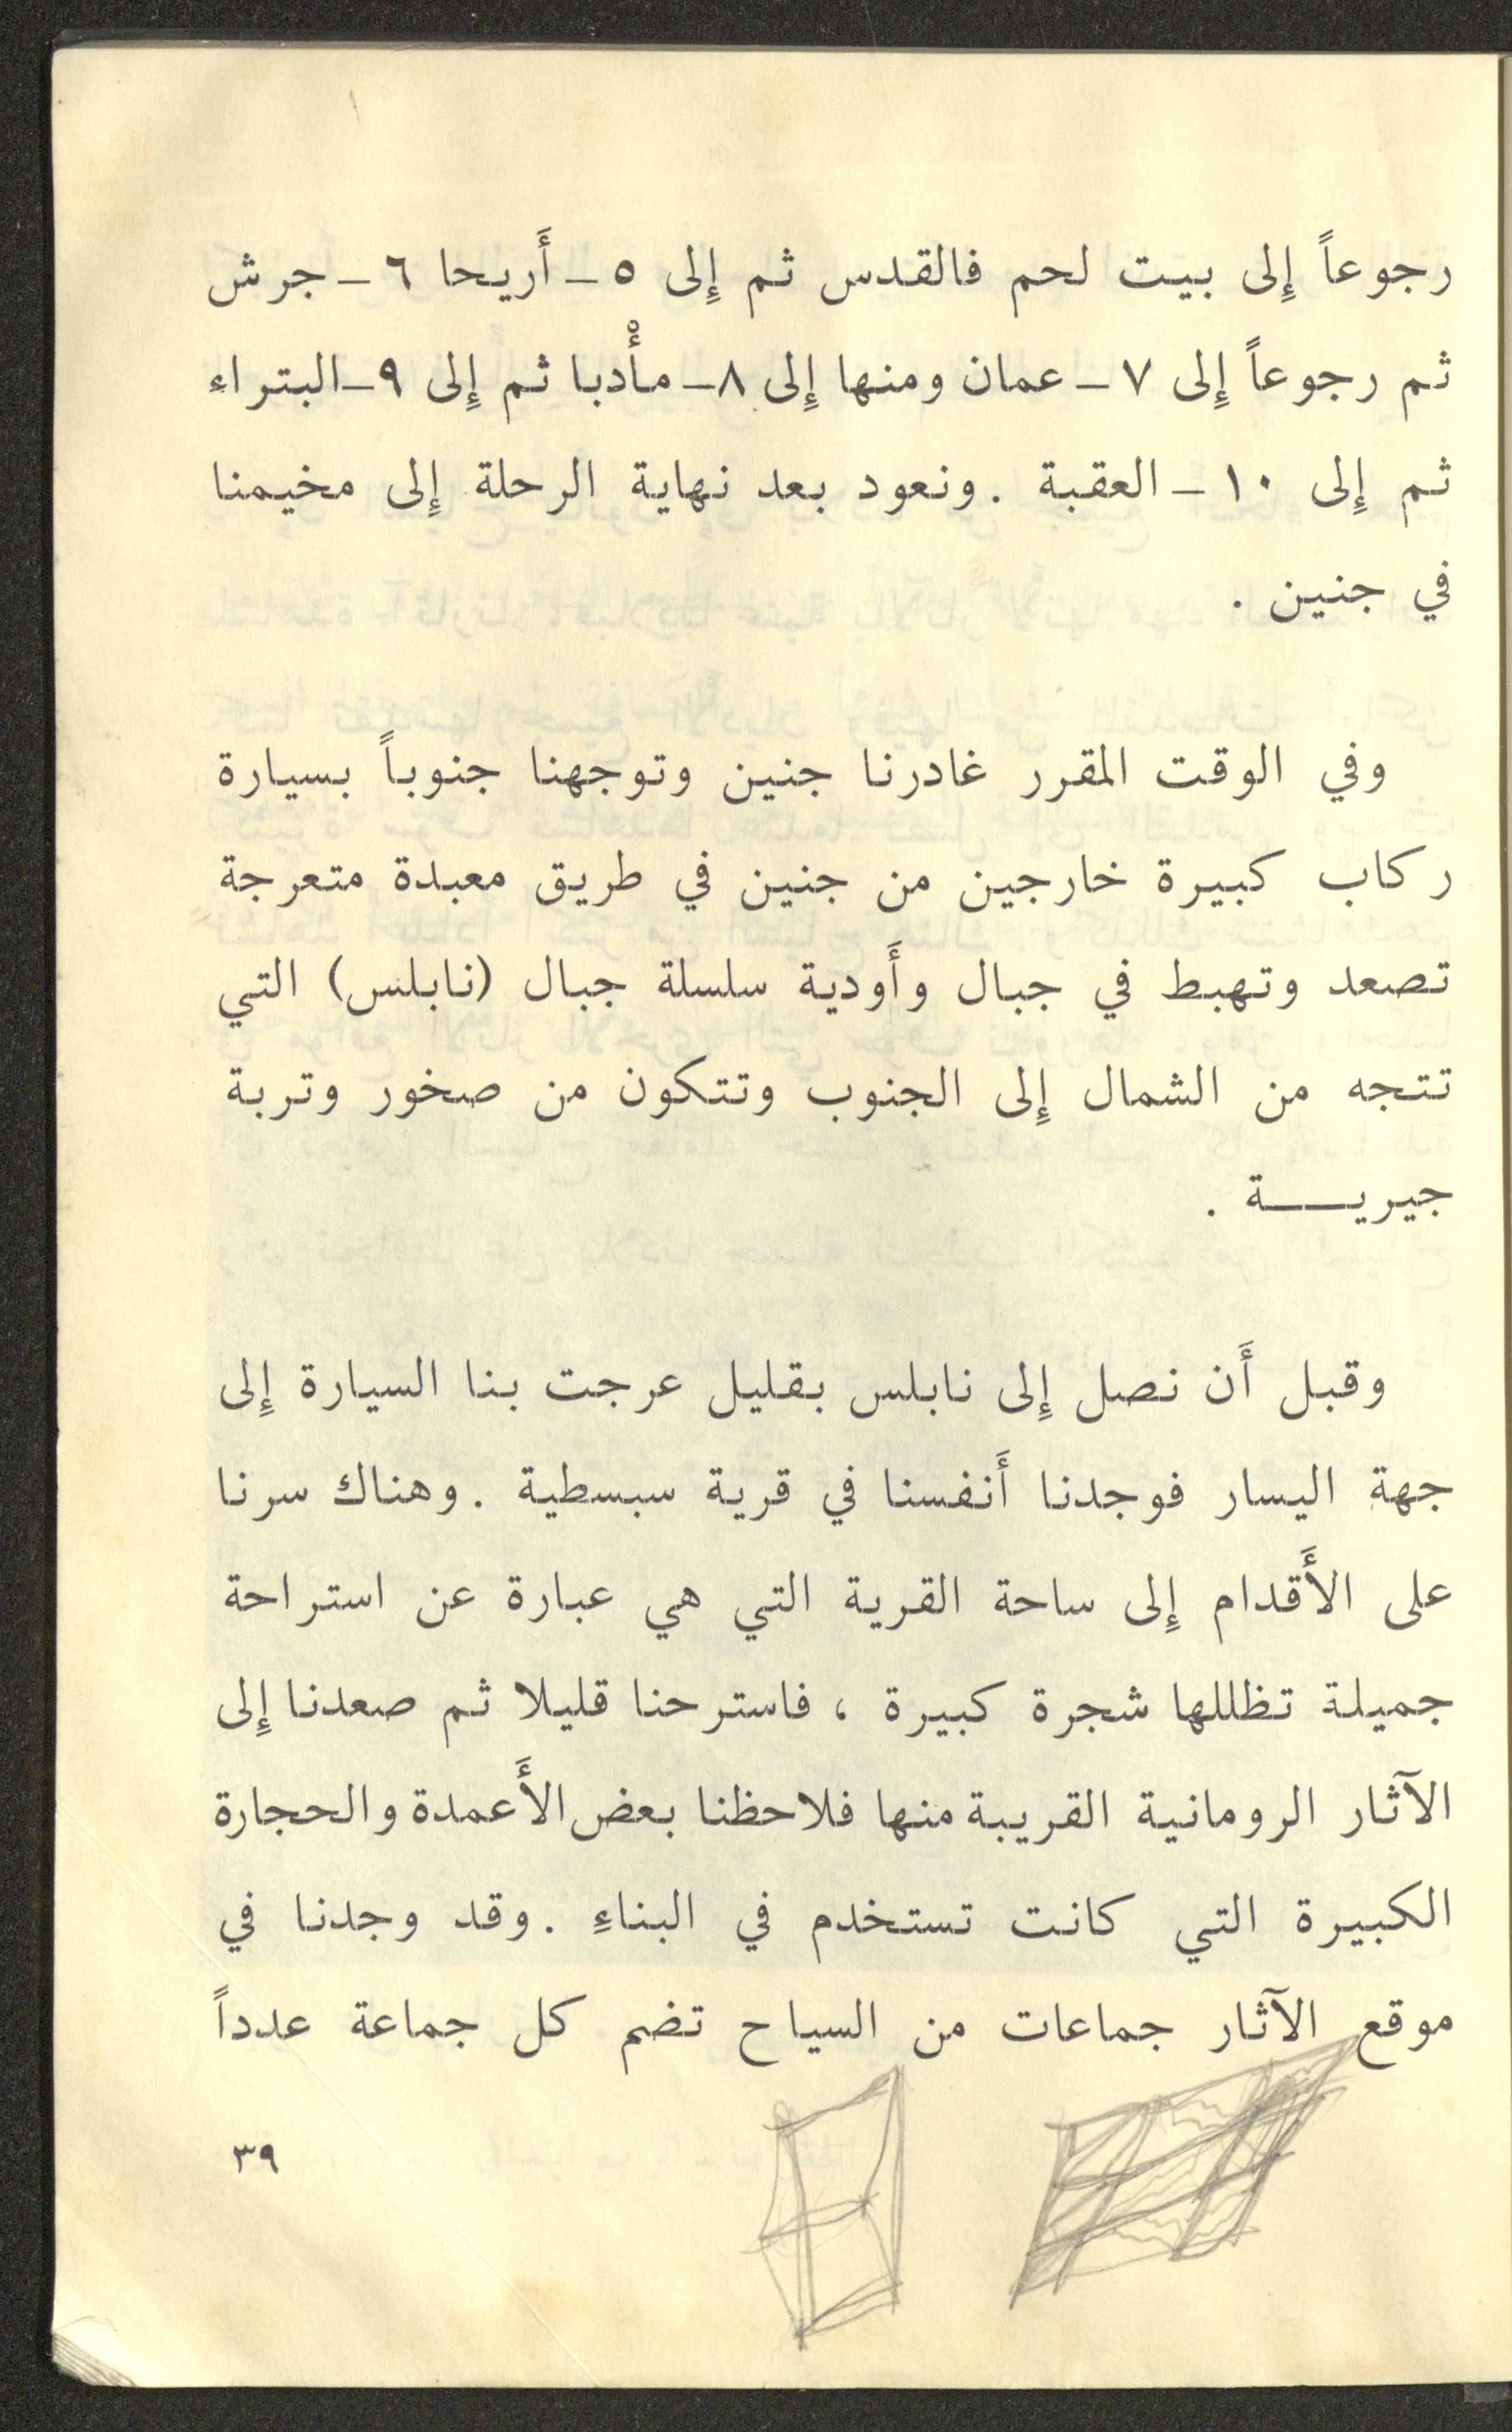 رجوعاً إِلى بيت لحم فالقدس ثم إِلى ٥ - أَريحا ٦ - جرش
ثم رجوعاً إِلى ٧ - عمان ومنها إِلى ٨ - مأْدبا ثم إِلى ٩ - البتراء
ثم إِلى ١٠ - العقبة . ونعود بعد نهاية الرحلة إِلى مخيمنا
في جنين .
وفي الوقت المقرر غادرنا جنين وتوجهنا جنوباً بسيارة
ركاب كبيرة خارجين من جنين في طريق معبدة متعرجة
تصعد وتهبط في جبال وأَودية سلسلة جبال (نابلس) التي
تتجه من الشمال إِلى الجنوب وتتكون من صخور وتربة
جيريـــة .
وقبل أَن نصل إِلى نابلس بقليل عرجت بنا السيارة إِلى
جهة اليسار فوجدنا أَنفسنا في قرية سبسطية . وهناك سرنا
على الأَقدام إِلى ساحة القرية التي هي عبارة عن استراحة
جميلة تظللها شجرة كبيرة ، فاسترحنا قليلا ثم صعدنا إِلى
الآثار الرومانية القريبة منها فلاحظنا بعض الأَعمدة والحجارة
الكبيرة التي كانت تستخدم في البناءِ . وقد وجدنا في
موقع الآثار جماعات من السياح تضم كل جماعة عدداً
٣٩